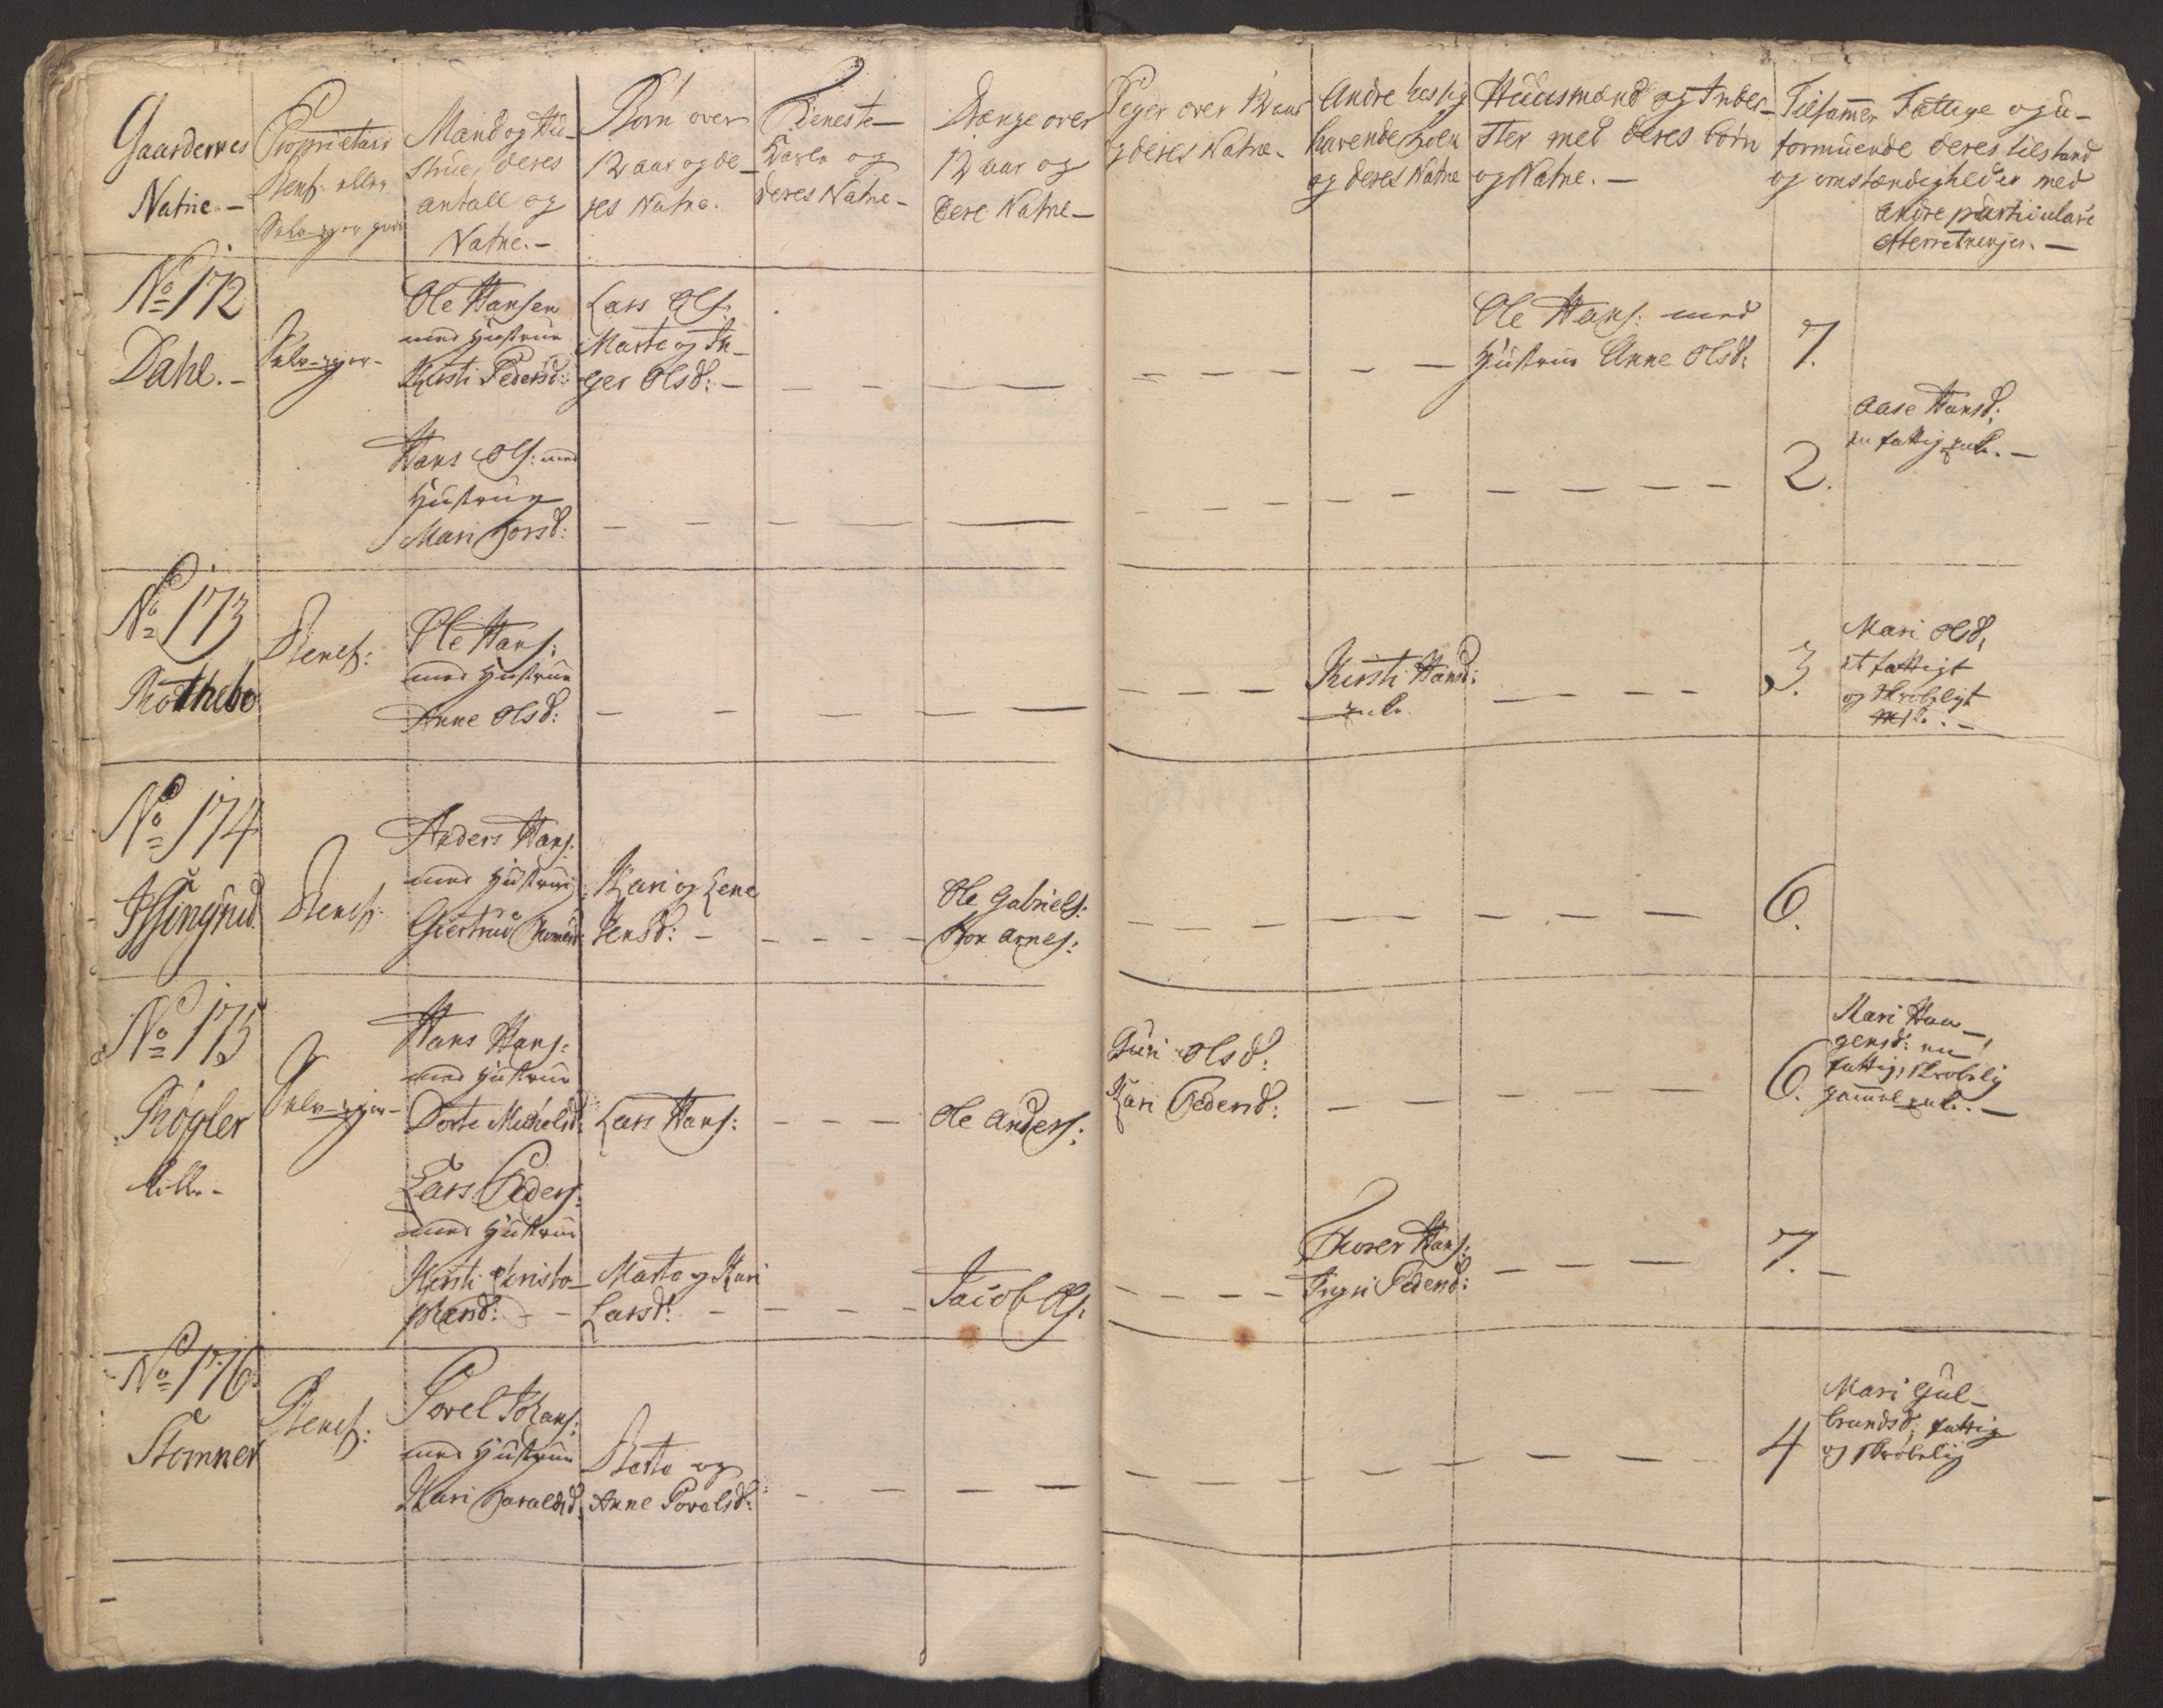 Gaardernes
Natne. -
Proprietair
Benef: eller
Selv-ejer
Mand og Hu-
strue, deres
antall og
Natne. -
Børn over
12 aar og de-
res Natne.
Tieneste-
Karle og
deres Natne -
Drænge over
12 aar og
dere Natne -
Piger over 12 aar
og deres Natne -
Andre hos sig
havende folk
og deres Natne
Huusmænd og Inder-
ster med deres børn
og Natne. -
Tilsamen
Fattige og u-
formuende deres tilstand
og omstændigheder med
andre particulare
efterretninger. -
No 172
Dahl. -
Selv-ejer -
Ole Hansen
med Hustrue
Kirsti Pedersd:
Lars Ols:
Marte og In-
ger Olsd: -
Ole Hans: med
Hustrue Anne Olsd:
7.
Hans Ols: med
Hustrue
Mari Torsd:
2.
Aase Hansd:
en fattig enke. -
No 173
Rothebo
Benef:
Ole Hans:
med Hustrue
Anne Olsd:
Kirsti Hansd:
enke
3.
Mari Olsd,
et fattigt
og skrøbeligt
No 174
Benef:
Anders Hans:
med Hustrue
Giertrud
Kari og Lene
Jensd: -
Ole Gabriels:
Jon Arnes:
6.
No 175
Røgler
lille -
Selv-ejer -
Hans Hans:
med Hustrue
Dorte Michelsd:
Lars Hans:
Ole Anders:
Guri Olsd:
Kari Pedersd:
6.
Mari Haa-
gensd: en
fattig, skrøbelig
gammel enke. -
Lars Peders:
med Hustrue
Kirsti Christo-
phersd:
Marte og Kari
Larsd:
Jacob Ols:
Thorer Hans:
Ingri Pedersd:
7.
No 176
Stomner
Benef:
Povel Hans:
med Hustrue
Kari Haraldsd:
Berte og
Anne Povelsd:
4
Mari Gul-
brandsd: fattig
og skrøbelig